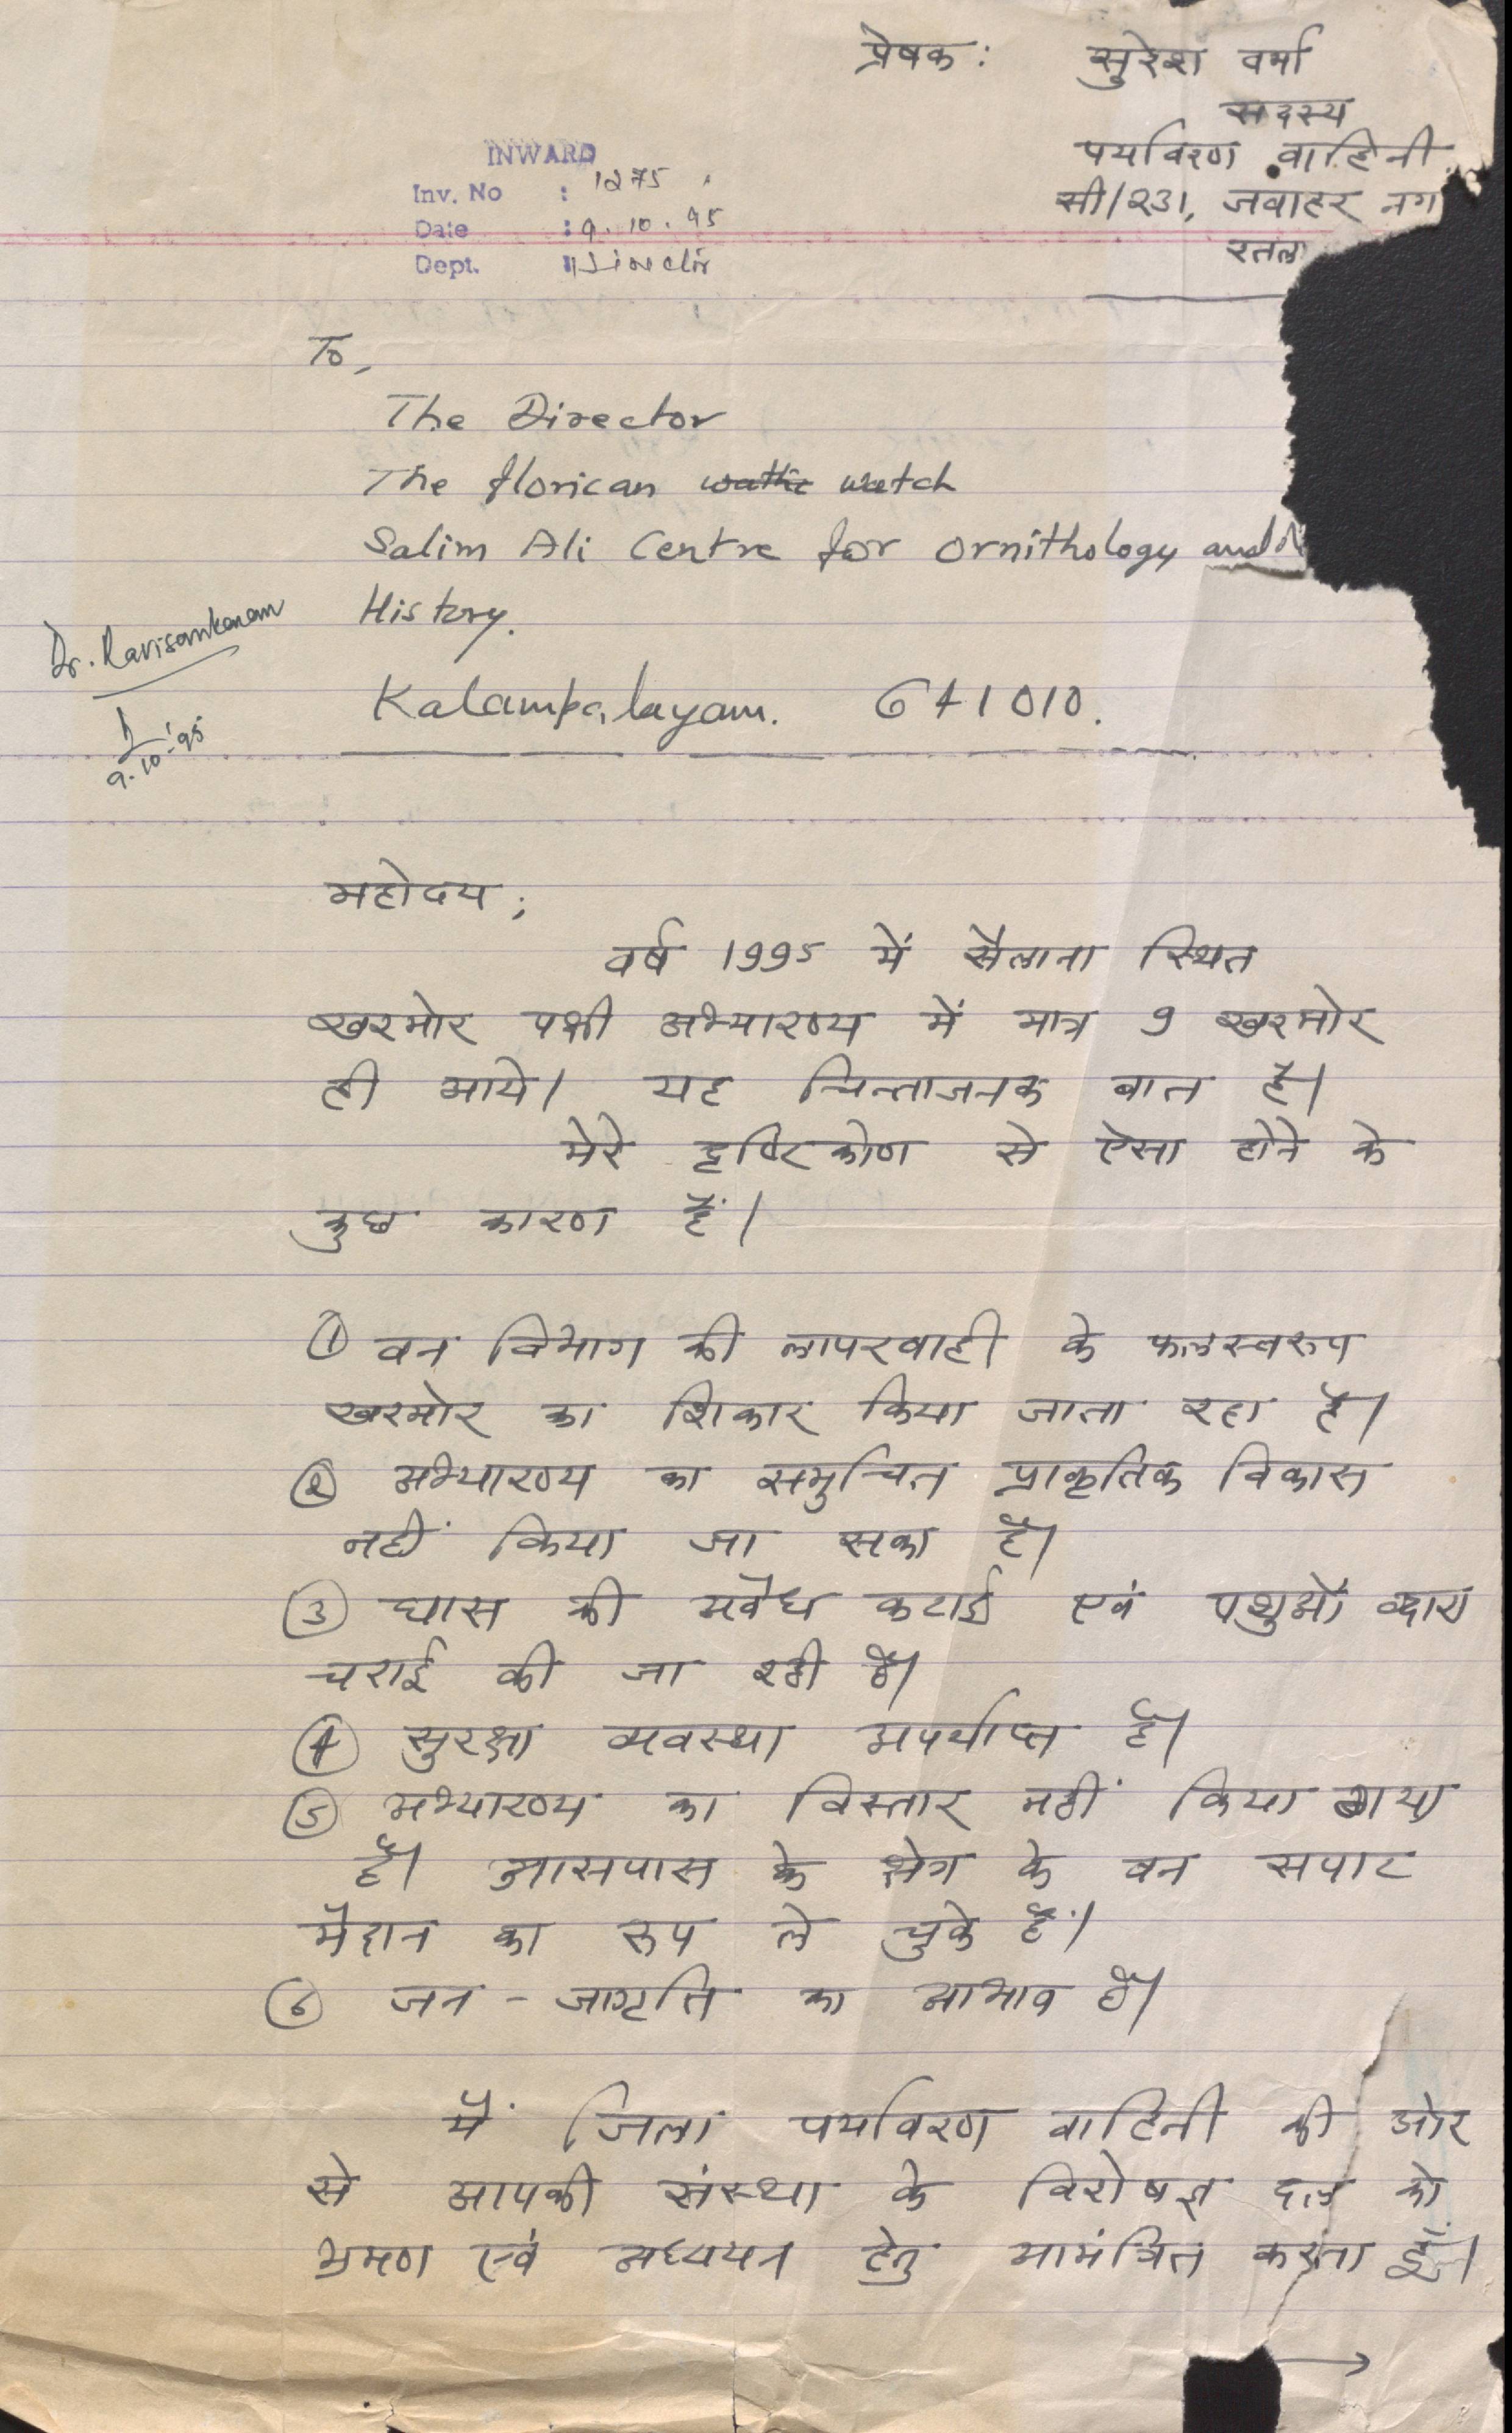 प्रेषक: सुरेश वर्मा
सदस्य
पर्यावरण वाहिनी
सी/231, जवाहर नग
रतला
INWARD
Inv. No : 1275
Date : 9.10.95
Dept. : Director
To,
The Director
The florican watch
Salim Ali Centre for Ornithology and
History.
Kalampalayam. 641010.
Dr. Ravisankaran
9.10.'95
महोदय,
वर्ष 1995 में सैलाना स्थित
खरमोर पक्षी अभ्यारण्य में मात्र 9 खरमोर
ही आये। यह चिन्ताजनक बात है।
मेरे दृष्टिकोण से ऐसा होने के
कुछ कारण हैं।
① वन विभाग की लापरवाही के फलस्वरूप
खरमोर का शिकार किया जाता रहा है।
② अभ्यारण्य का समुचित प्राकृतिक विकास
नहीं किया जा सका है।
③ घास की अवैध कटाई एवं पशुओं व्दारा
चराई की जा रही है।
④ सुरक्षा व्यवस्था अपर्याप्त है।
⑤ अभ्यारण्य का विस्तार नहीं किया गया
है। आसपास के क्षेत्र के वन सपाट
मैदान का रूप ले चुके हैं।
⑥ जन - जागृति का आभाव है।
मैं जिला पर्यावरण वाहिनी की ओर
से आपकी संस्था के विशेषज्ञ दल को
भ्रमण एवं अध्ययन हेतु आमंत्रित करता हूँ।
→